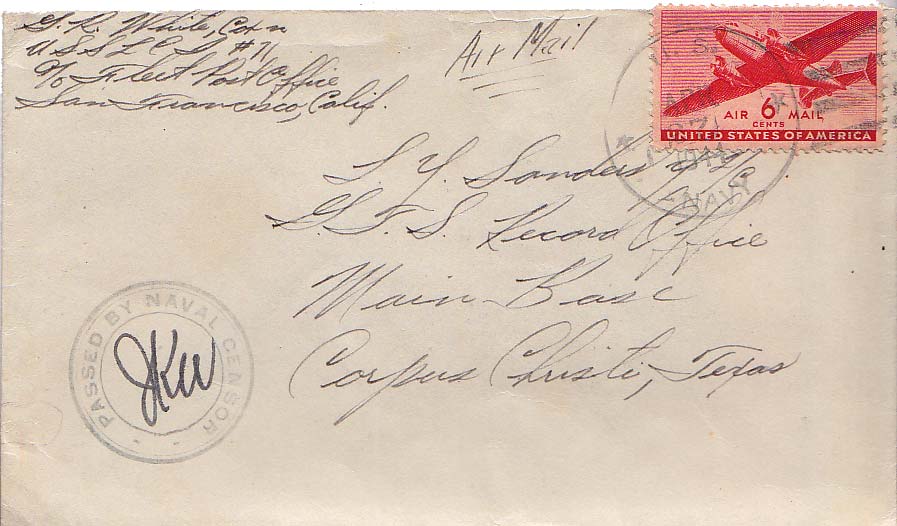 G. R. White, Cox'n
U.S.S. L.C.I. #71
c/o Fleet Post Office
San Francisco, Calif.
Air Mail
AIR 6 MAIL
CENTS
UNITED STATES OF AMERICA
1944
NAVY
L. Y. Sanders
G. F. S. Record Office
Main Base
Corpus Christi, Texas
PASSED BY NAVAL CENSOR
JKW